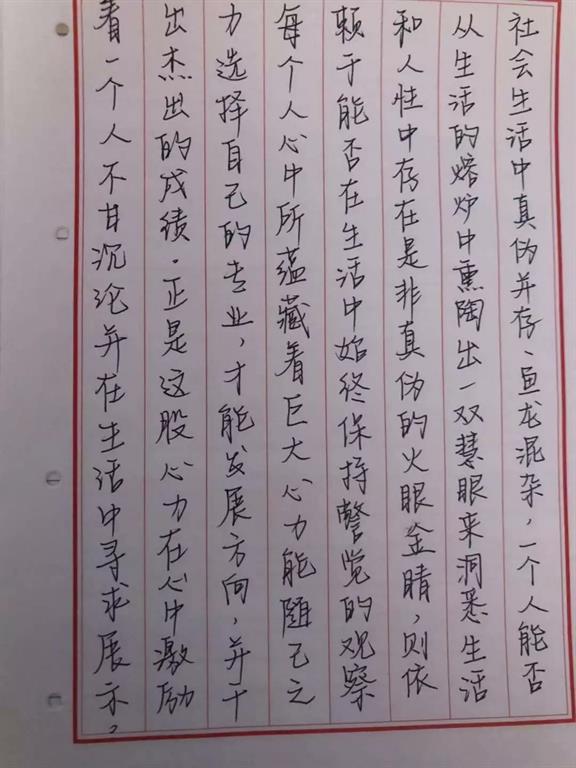 社会生活中真伪并存、鱼龙混杂，一个人能否
从生活的熔炉中熏陶出一双慧眼来洞悉生活
和人性中存在是非真伪的火眼金睛，则依
赖于能否在生活中始终保持警觉的观察
每个人心中所蕴藏着巨大心力能随己之
力选择自己的专业，才能发展方向，并干
出杰出的成绩．正是这股心力在心中激励
着一个人不甘沉沦并在生活中寻求展示。